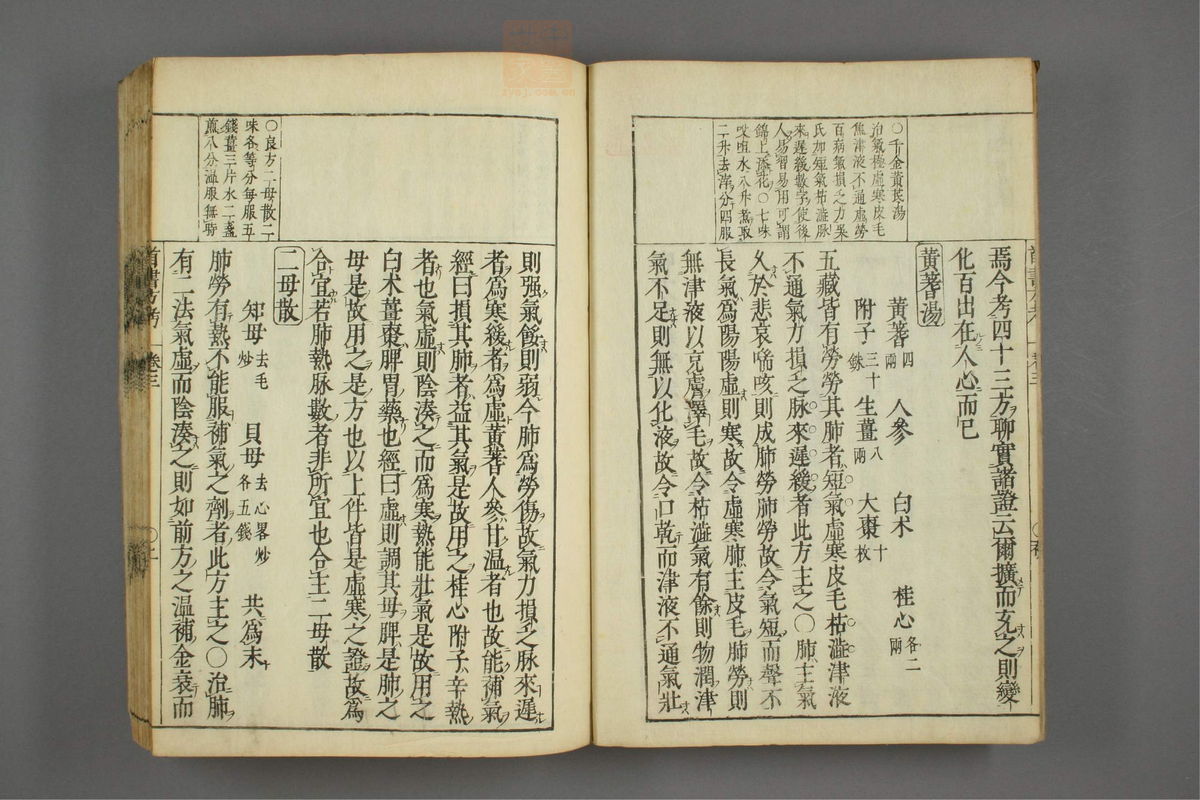 〇千金黃芪湯
治氣極虛寒皮毛
焦津液不通虛勞
百病氣損乏力吳
氏加短氣枯澁脉
來遲緩數字使後
人易習易用可謂
錦上添花〇七味
㕮咀水八升煮取
二升去滓分四服
焉今考四十三方聊實諸證云爾擴而充之則變
化百出在人心而已
黃蓍湯
黃蓍四兩 人參 白术 桂心各二兩
附子三十銖 生薑八兩 大棗十枚
五藏皆有勞勞其肺者短氣虛寒皮毛枯澁津液
不通氣力損乏脉來遲緩者此方主之〇肺主氣
久於悲哀喘咳則成肺勞肺勞故令氣短而聲不
長氣爲陽陽虛則寒故令虛寒肺主皮毛肺勞則
無津液以充膚澤毛故令枯澁氣有餘則物潤津
氣不足則無以化液故令口乾而津液不通氣壯
則强氣餒則弱今肺爲勞傷故氣力損乏脉來遲
者爲寒緩者爲虛黃蓍人參甘溫者也故能補氣
經曰損其肺者益其氣是故用之桂心附子辛熱
者也氣虛則陰湊之而爲寒熱能壯氣是故用之
白术薑棗脾胃藥也經曰虛則調其母脾是肺之
母是故用之是方也以上件皆是虛寒之證故爲
合宜若肺熱脉數者非所宜也合主二母散
〇良方二母散二
味各等分每服五
錢薑三片水二盞
煎八分溫服無時
二母散
知母去毛炒 貝母去心畧炒各五錢 共爲末
肺勞有熱不能服補氣之劑者此方主之〇治肺
有二法氣虛而陰湊之則如前方之溫補金衰而
首書方考 卷三 〇二